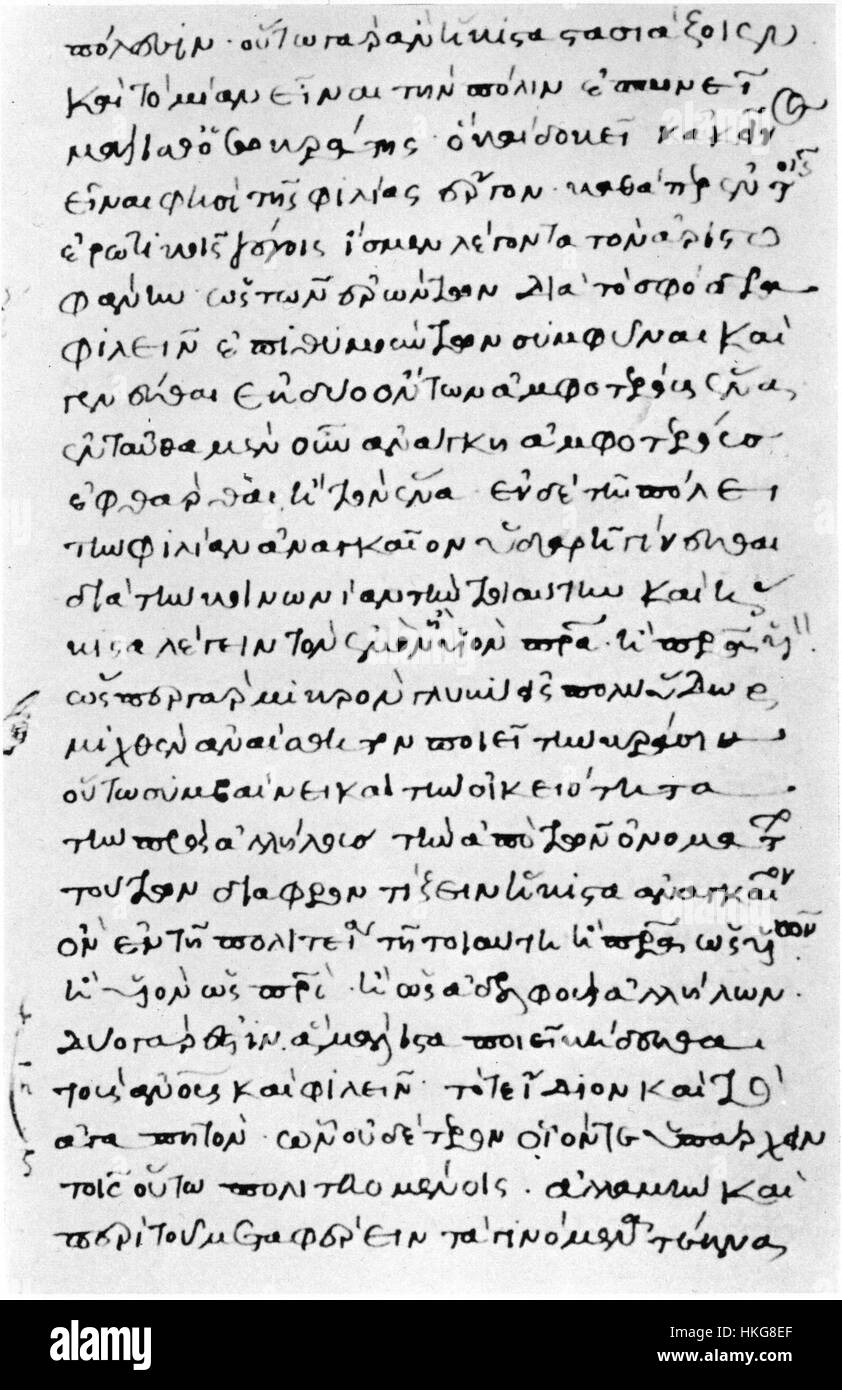 πόλεσιν· οὕτω γὰρ ἂν ἥκιστα στασιάζοιεν
καὶ τὸ μίαν εἶναι τὴν πόλιν ἐπαινεῖ
μάλισθ' ὁ Σωκράτης· ὃ καὶ δοκεῖ κἀκεῖν
εἶναι φησὶ τῆς φιλίας ἔργον· καθάπερ ἐν τοῖς
ἐρωτικοῖς λόγοις ἴσμεν λέγοντα τὸν ἀριστο
φάνην ὡς τῶν ἐρώντων διὰ τὸ σφόδρα
φιλεῖν ἐπιθυμούντων συμφῦναι καὶ
γενέσθαι ἐκ δύο ὄντων ἀμφοτέρους ἕνα·
ἐνταῦθα μὲν οὖν ἀνάγκη ἀμφοτέρους
ἐφθάρθαι ἢ τὸν ἕνα· ἐν δὲ τῇ πόλει
τὴν φιλίαν ἀναγκαῖον ὑδαρῆ γίνεσθαι
διὰ τὴν κοινωνίαν τὴν τοιαύτην καὶ ἥ
κιστα λέγειν τὸν ἐμὸν ἢ υἱὸν πατέρα· ἢ πατέρα υἱόν·
ὥσπερ γὰρ μικρὸν γλυκὺ εἰς πολὺ ὕδωρ
μιχθὲν ἀναίσθητον ποιεῖ τὴν κρᾶσιν
οὕτω συμβαίνει καὶ τὴν οἰκειότητα
τὴν πρὸς ἀλλήλους τὴν ἀπὸ τῶν ὀνομάτων
τούτων διαφροντίζειν ἥκιστα ἀναγκαῖον
ὂν ἐν τῇ πολιτείᾳ τῇ τοιαύτῃ ἢ πατέρα ὡς υἱῶν
ἢ υἱὸν ὡς πατρὸς· ἢ ὡς ἀδελφοὺς ἀλλήλων·
δύο γάρ ἐστιν ἃ μάλιστα ποιεῖ κήδεσθαι
τοὺς ἀνθρώπους καὶ φιλεῖν· τό τε ἴδιον καὶ τὸ
ἀγαπητὸν· ὧν οὐδέτερον οἷόν τε ὑπάρχειν
τοῖς οὕτω πολιτευομένοις· ἀλλὰ μὴν καὶ
περὶ τοῦ μεταφέρειν τὰ γινόμενα τέκνα
alamy
Image ID: HKG8EF
www.alamy.com